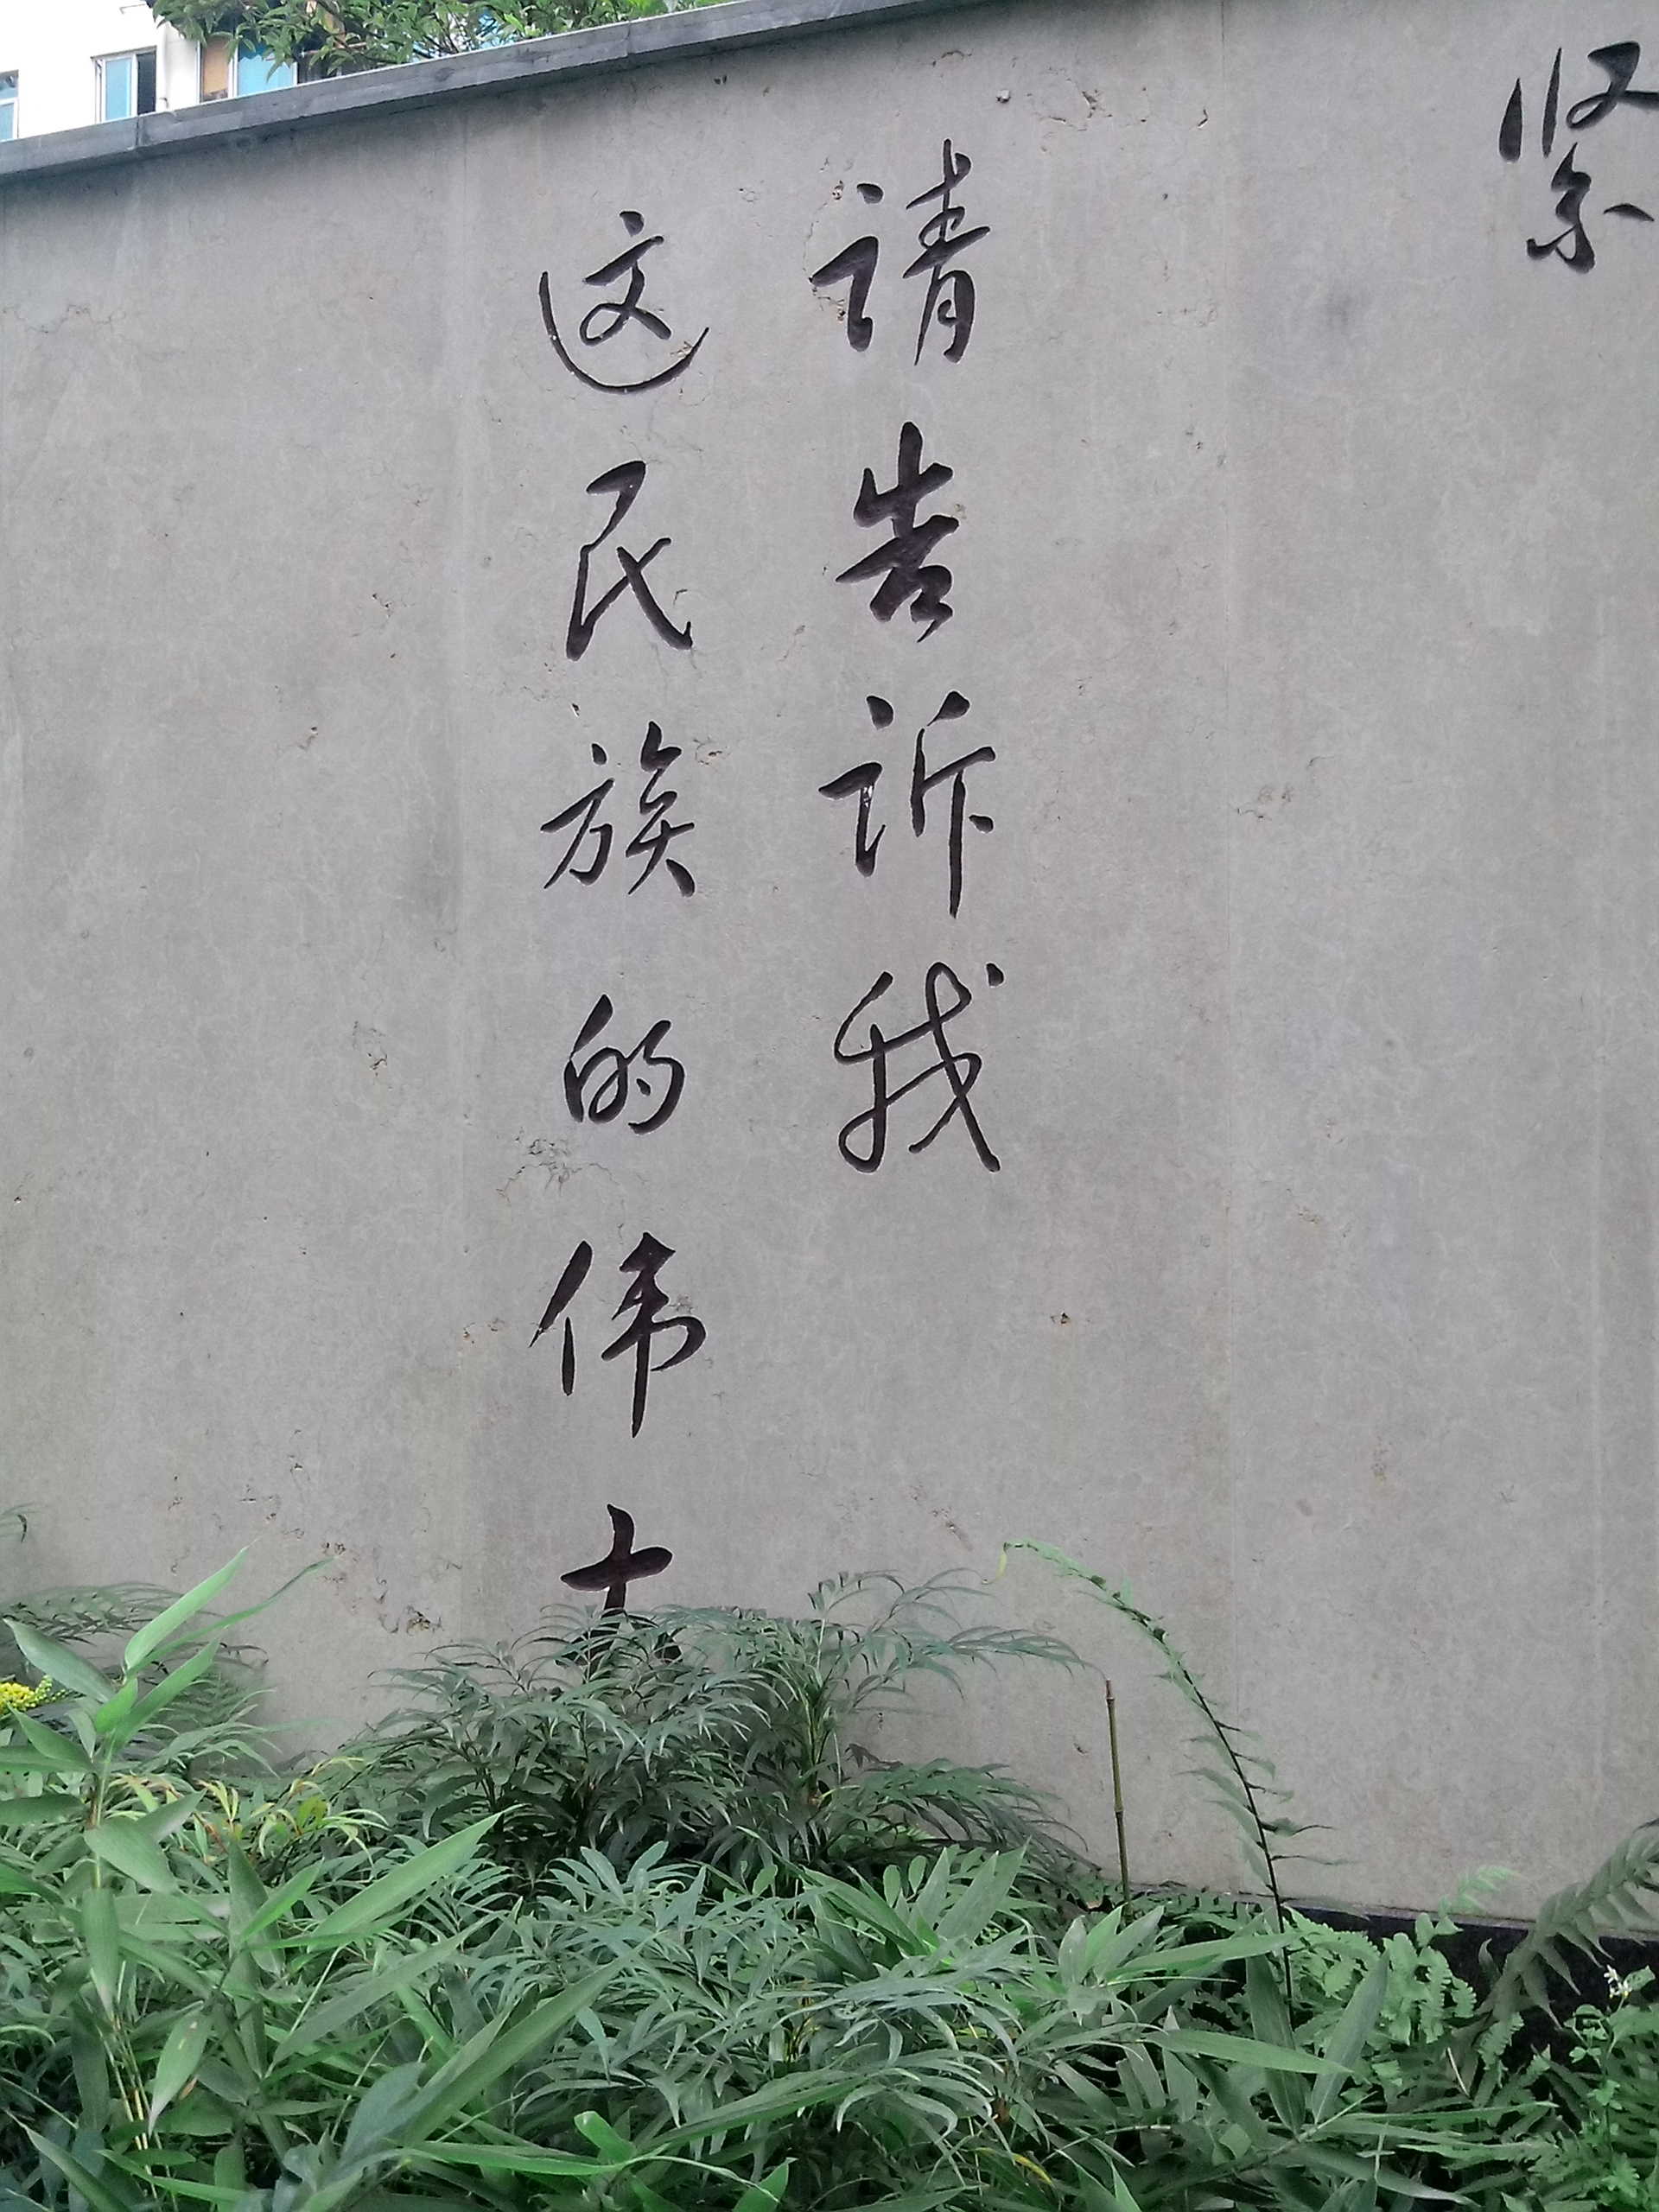 紧
请告诉我
这民族的伟大